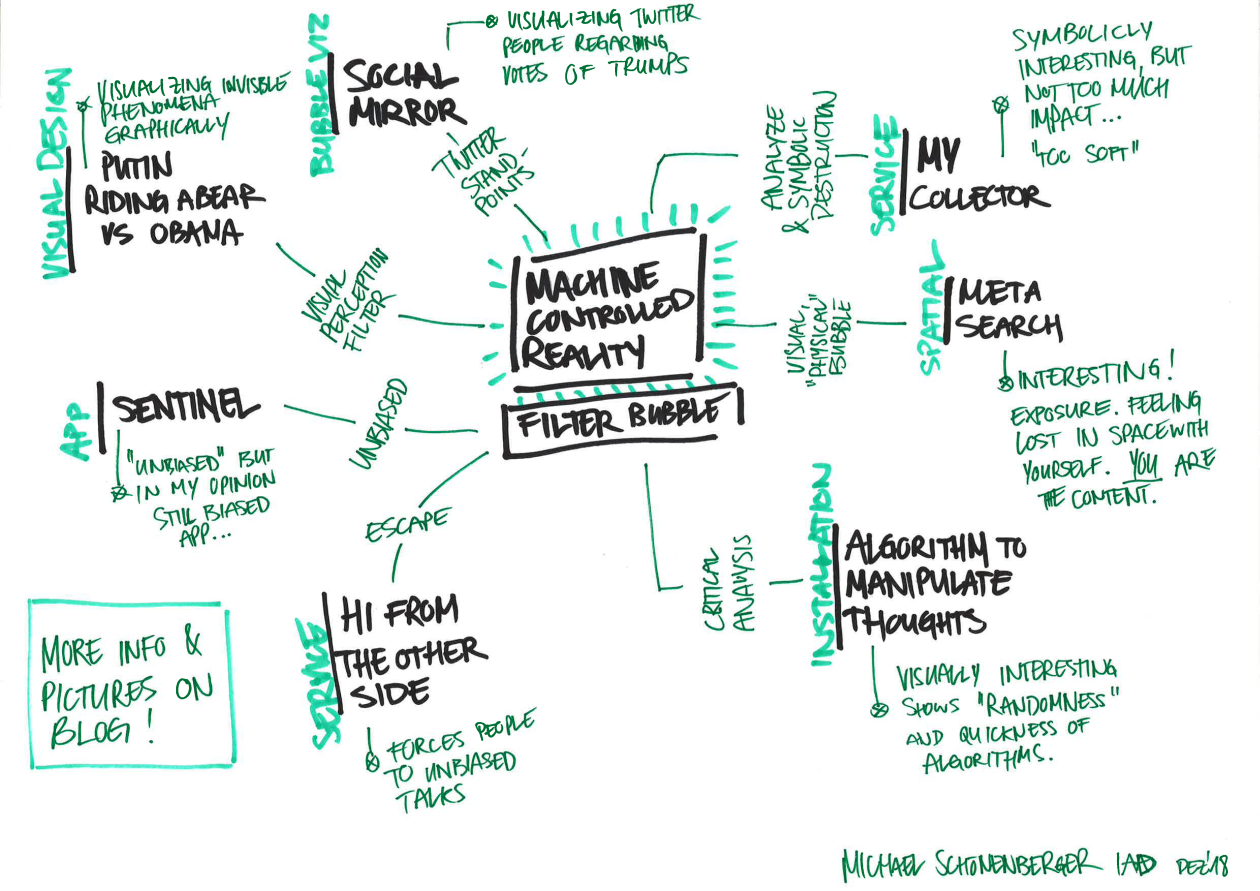 VISUAL DESIGN
VISUALIZING INVISBLE
PHENOMENA
GRAPHICALLY
PUTIN
RIDING A BEAR
VS OBAMA
VISUAL
PERCEPTION
FILTER
BUBBLE VIZ
SOCIAL
MIRROR
VISUALIZING TWITTER
PEOPLE REGARDING
VOTES OF TRUMPS
TWITTER
STAND-
POINTS
ANALYZE
& SYMBOLIC
DESTRUCTION
SERVICE
MY
COLLECTOR
SYMBOLICLY
INTERESTING, BUT
NOT TOO MUCH
IMPACT...
"TOO SOFT"
MACHINE
CONTROLLED
REALITY
FILTER BUBBLE
VISUAL,
"PHYSICAL"
BUBBLE
SPATIAL
META
SEARCH
INTERESTING!
EXPOSURE. FEELING
LOST IN SPACE WITH
YOURSELF. YOU ARE
THE CONTENT.
APP
SENTINEL
UNBIASED
"UNBIASED" BUT
IN MY OPINION
STILL BIASED
APP...
ESCAPE
SERVICE
HI FROM
THE OTHER
SIDE
FORCES PEOPLE
TO UNBIASED
TALKS
CRITICAL
ANALYSIS
INSTALLATION
ALGORITHM TO
MANIPULATE
THOUGHTS
VISUALLY INTERESTING
SHOWS "RANDOMNESS"
AND QUICKNESS OF
ALGORITHMS.
MORE INFO &
PICTURES ON
BLOG!
MICHAEL SCHÖNENBERGER IAD DEZ'18